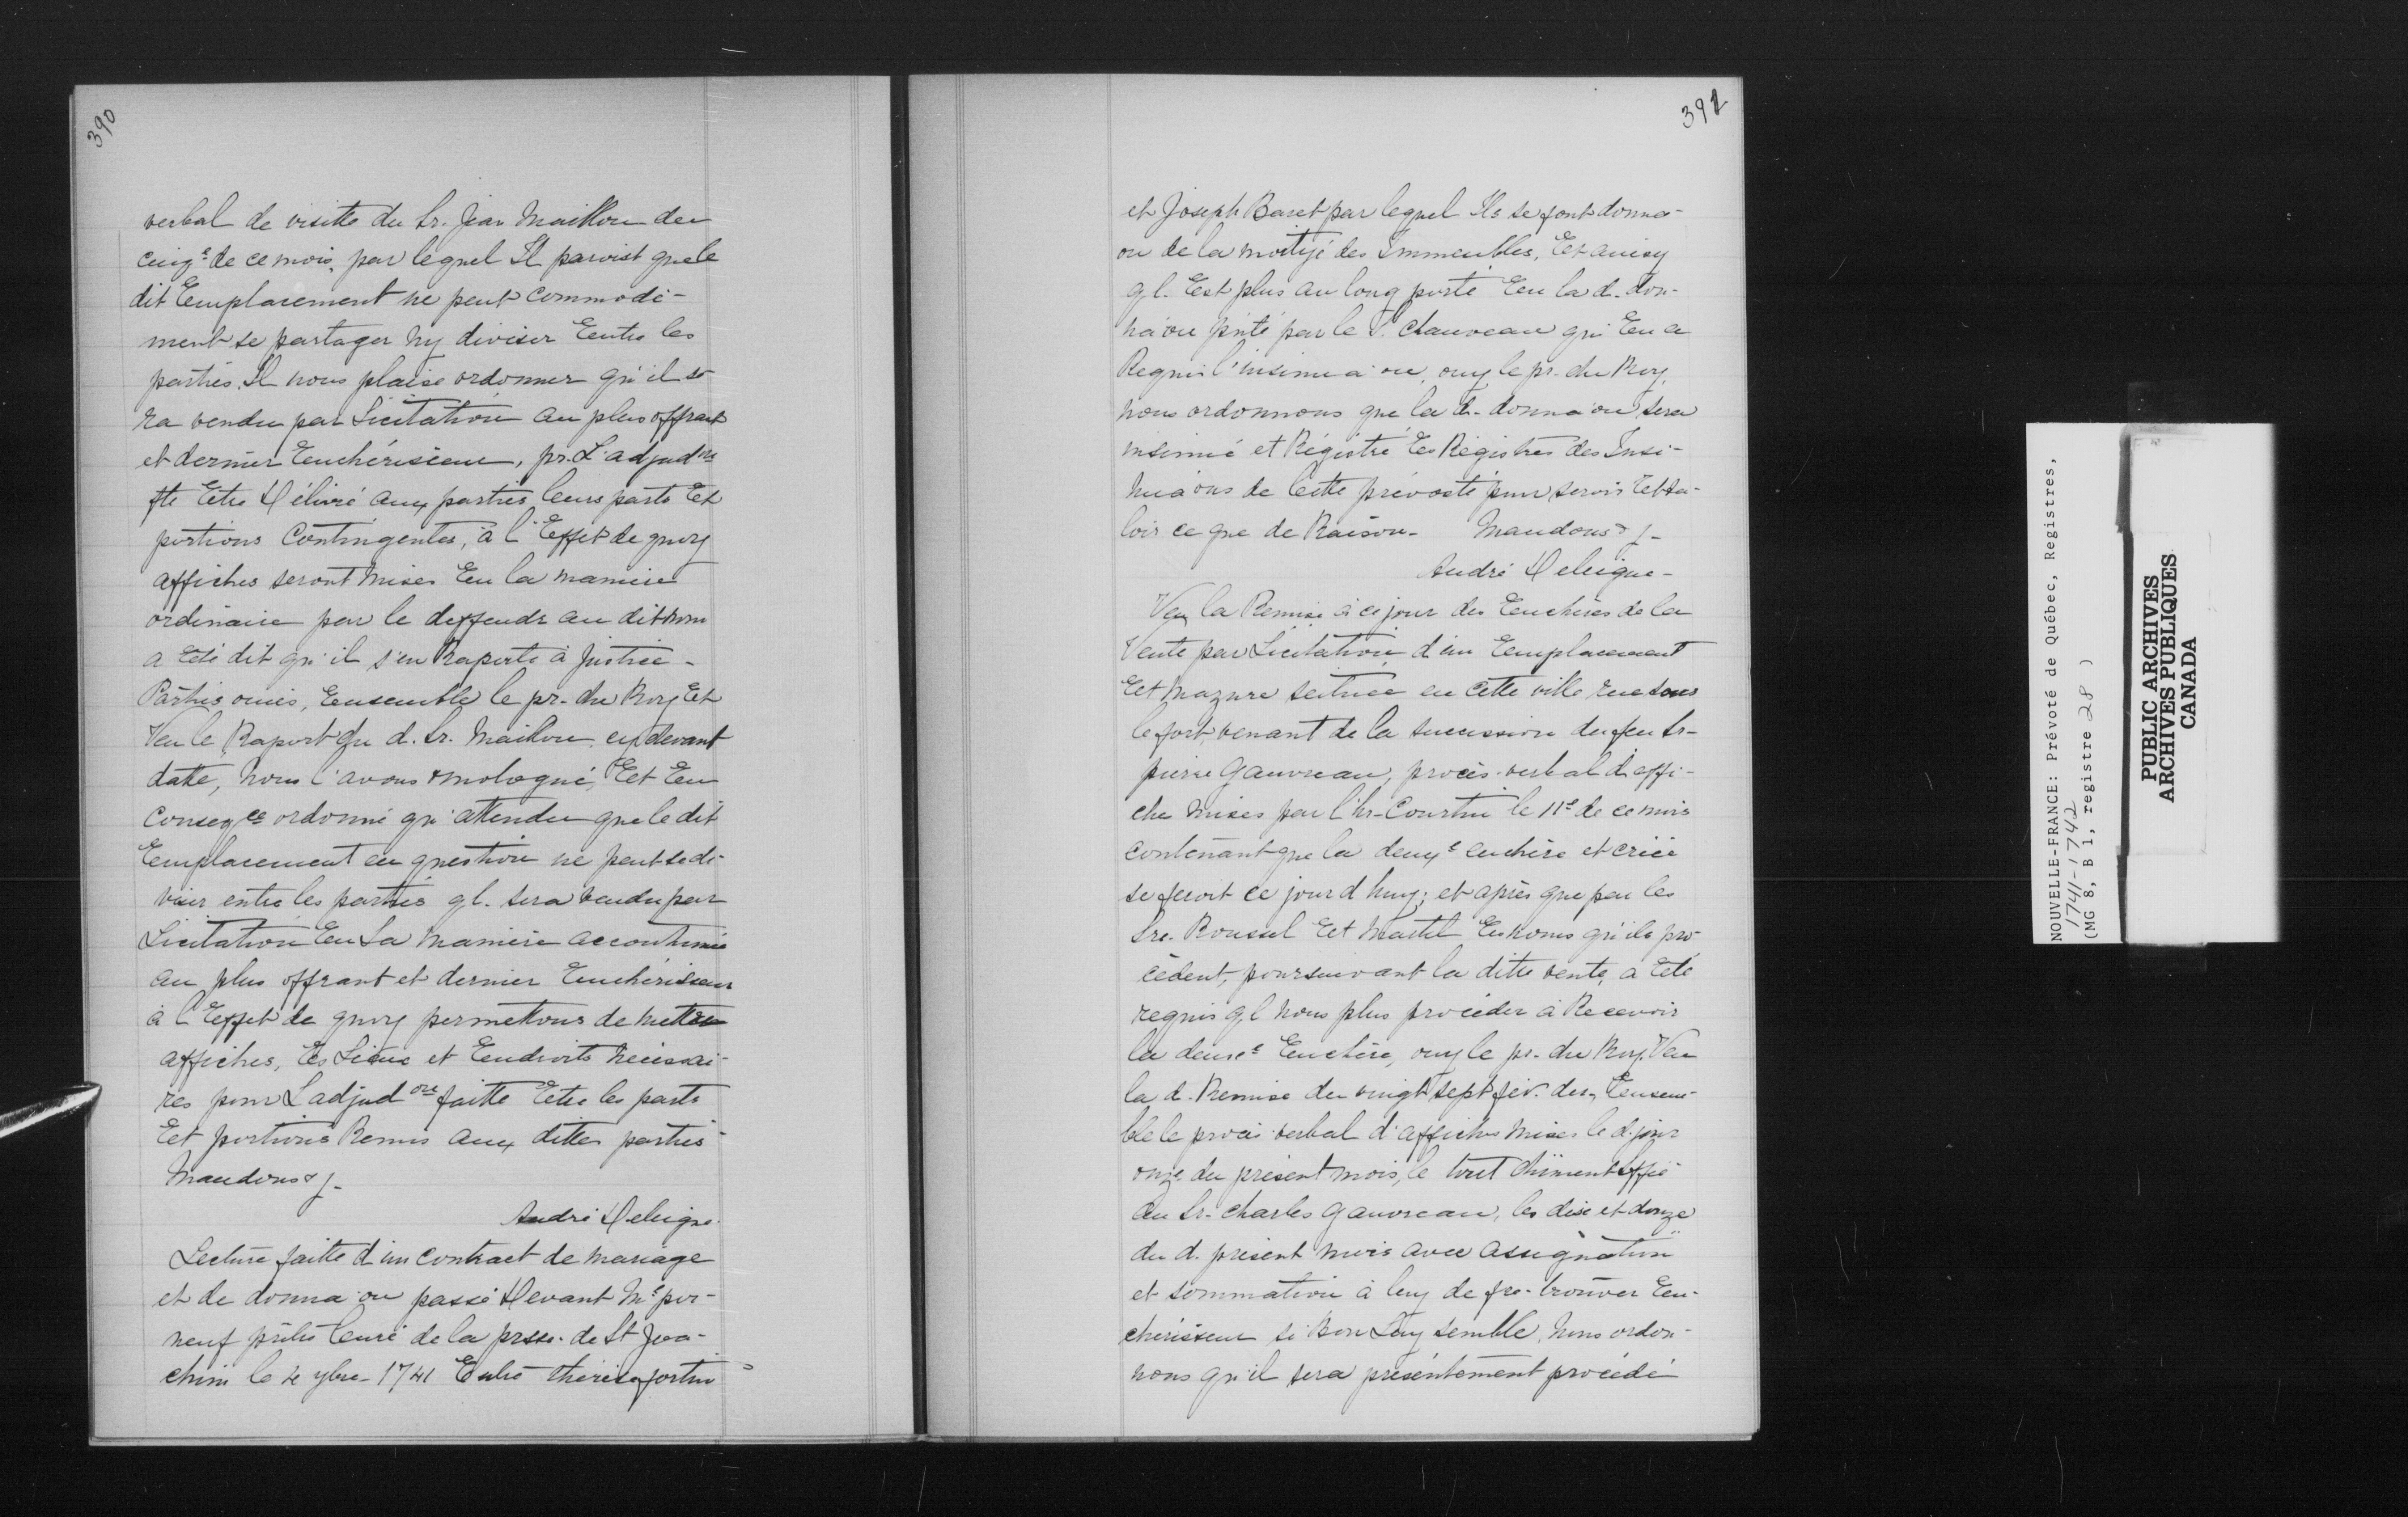 390
verbal de visitte du Sr. Jean Maillou du
cinq.e de ce mois, par lequel Il paroist que le
dit Emplacement ne peut Commodé-
ment se partager ny diviser Entre les
parties. Il nous plaise ordonner qu'il se-
ra vendu par Licitation au plus offrant
et dernier Enchérisseur, pr. L'adjud on
fte Etre Délivré aux parties leurs parts Et
portions Contingentes, à l'Effet de quoy
affiches seront mises En la manière
ordinaire par le deffendr au dit nom
a Eté dit qu'il s'en Raporte à Justice -
Parties ouies, Ensemble le pr. du Roy Et
Veu le Raport du d. Sr. Maillou cy devant
datté, nous l'avons omologué, Et En
Conseq ce ordonné qu'attendu que le dit
Emplacement en question ne peut se di-
viser entre les parties ql. sera vendu par
Licitation En La manière accoutumée
au plus offrant et dernier Enchérisseur
à l'Effet de quoy permettons de mettre
affiches, Es Lieux et Endroits nécessai-
res pour L'adjud on faitte Etre les parts
Et portions Remis aux dittes parties -
Mandons & -
André Deleigne.
Lecture faitte d'un contract de mariage
et de donna on passé Devant Me por-
neuf prêtre Curé de la prsse. de St Joa-
chim le 4 9bre - 1741 Entre thérèse fortin
392
et Joseph Baret par lequel Ils se font dona-
on de la moityé des Immeubles, Et ainsy
ql. Est plus au long porté En la d. don-
na on pnté par le S. Chauveau qui En a
Requis l'insinua on, ouy le pr. du Roy,
nous ordonnons que la d. donna on sera
insinué et Régistré Es Régistres des Insi-
nua ons de Cette prévosté pour servir Et va-
loir ce que de Raison - Mandons & -
André Deleigne -
Veu la Remise à ce jour des Enchères de la
Vente par Licitation d'un Emplacement
Et mazure scituée en cette ville rue sous
le fort, venant de la succession du feu Sr-
pierre Gauvreau, procès verbal d'affi-
che mises par l'hr. Courtin le 11e de ce mois
contenant que la deuxe enchère et criée
se feroit ce jour d'huy; et après que par les
Srs. Roussel Et Martel Es noms qu'ils pro-
cèdent, poursuivant la ditte vente, a Eté
requis ql nous plus procéder à Recevoir
la deuxe Enchère, ouy le pr. du Roy. Veu
la d. Remise du vingt sept fév. der, Ensem-
ble le procès verbal d'affiches mises le d. jour
onze du présent mois, le tout dûment siffié
au Sr. Charles Gauvreau, les dix et douze
du d. présent mois avec assignation
et sommation à luy de fre. trouver En-
chérisseur si Bon Luy semble, nous ordon-
nons qu'il sera présentement procédé
NOUVELLE-FRANCE: Prévoté de Québec, Registres,
1741-1742
(MG 8, B 1, registre 28 )
PUBLIC ARCHIVES
ARCHIVES PUBLIQUES
CANADA